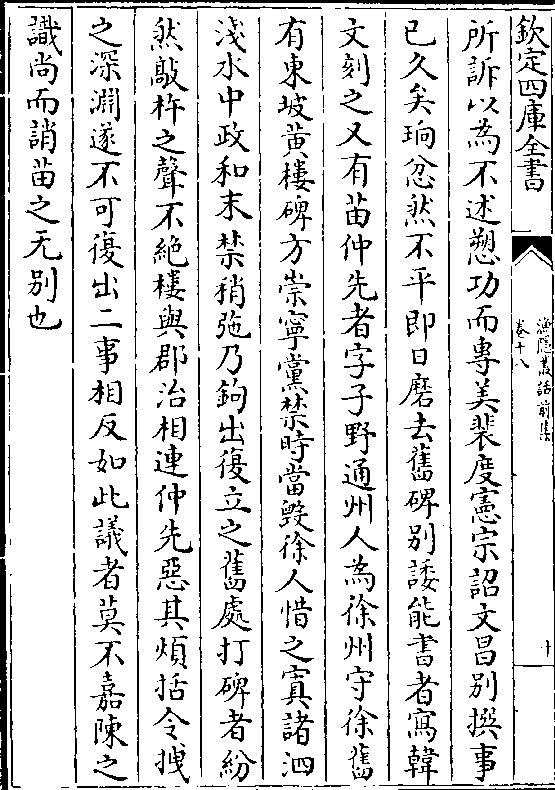 欽定四庫全書
漁隱叢話前集
卷十八
十
所訴以為不述愬功而專美裴度憲宗詔文昌別撰事
已久矣珦忿然不平即日磨去舊碑別諉能書者寫韓
文刻之又有苗仲先者字子野通州人為徐州守徐舊
有東坡黃樓碑方崇寧黨禁時當毀徐人惜之寘諸泗
淺水中政和末禁稍弛乃鉤出復立之舊處打碑者紛
然敲杵之聲不絕樓與郡治相連仲先惡其煩括令拽
之深淵遂不可復出二事相反如此議者莫不嘉陳之
識尚而誚苗之无別也